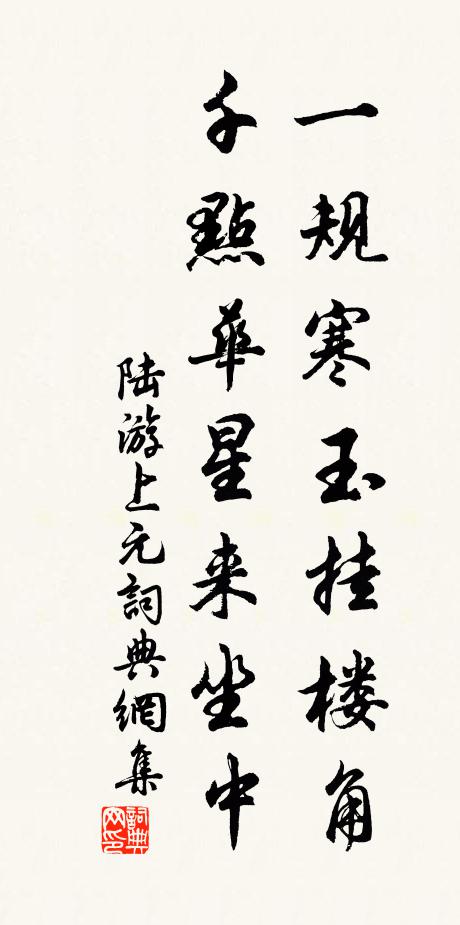 一規寒玉挂楼角
千點華星来坐中
陆游上元詞典網集
詞典网印